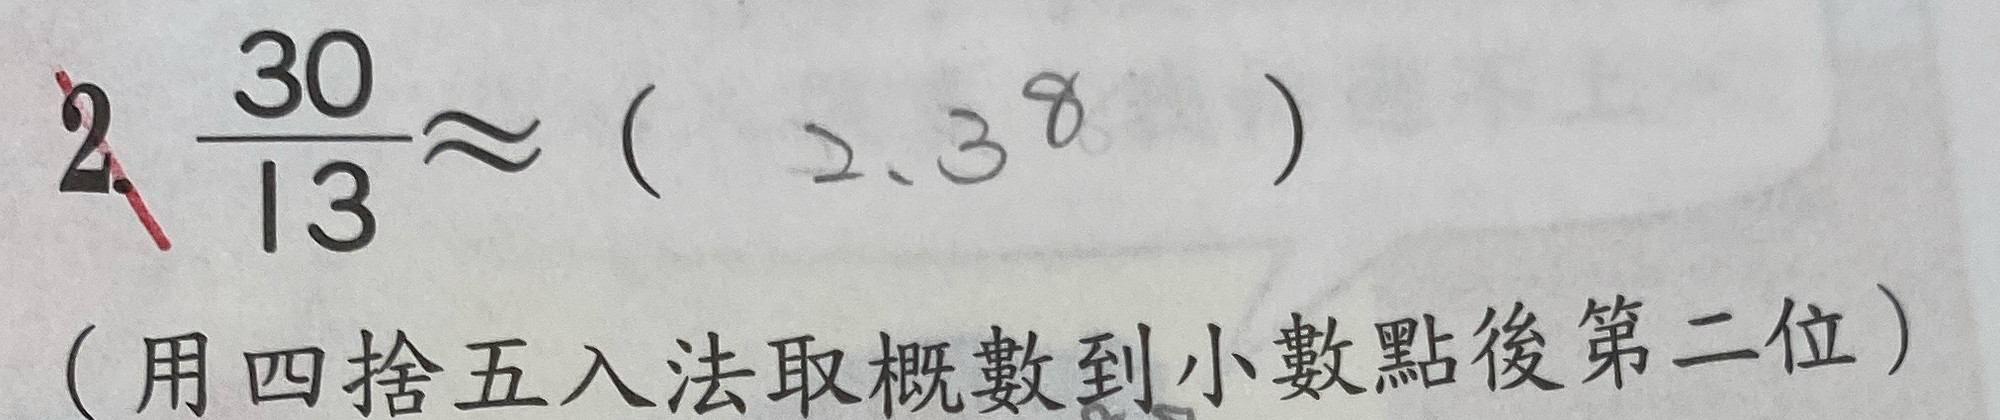 2. 30/13 ≈ ( 2.38 )
(用四捨五入法取概數到小數點後第二位)